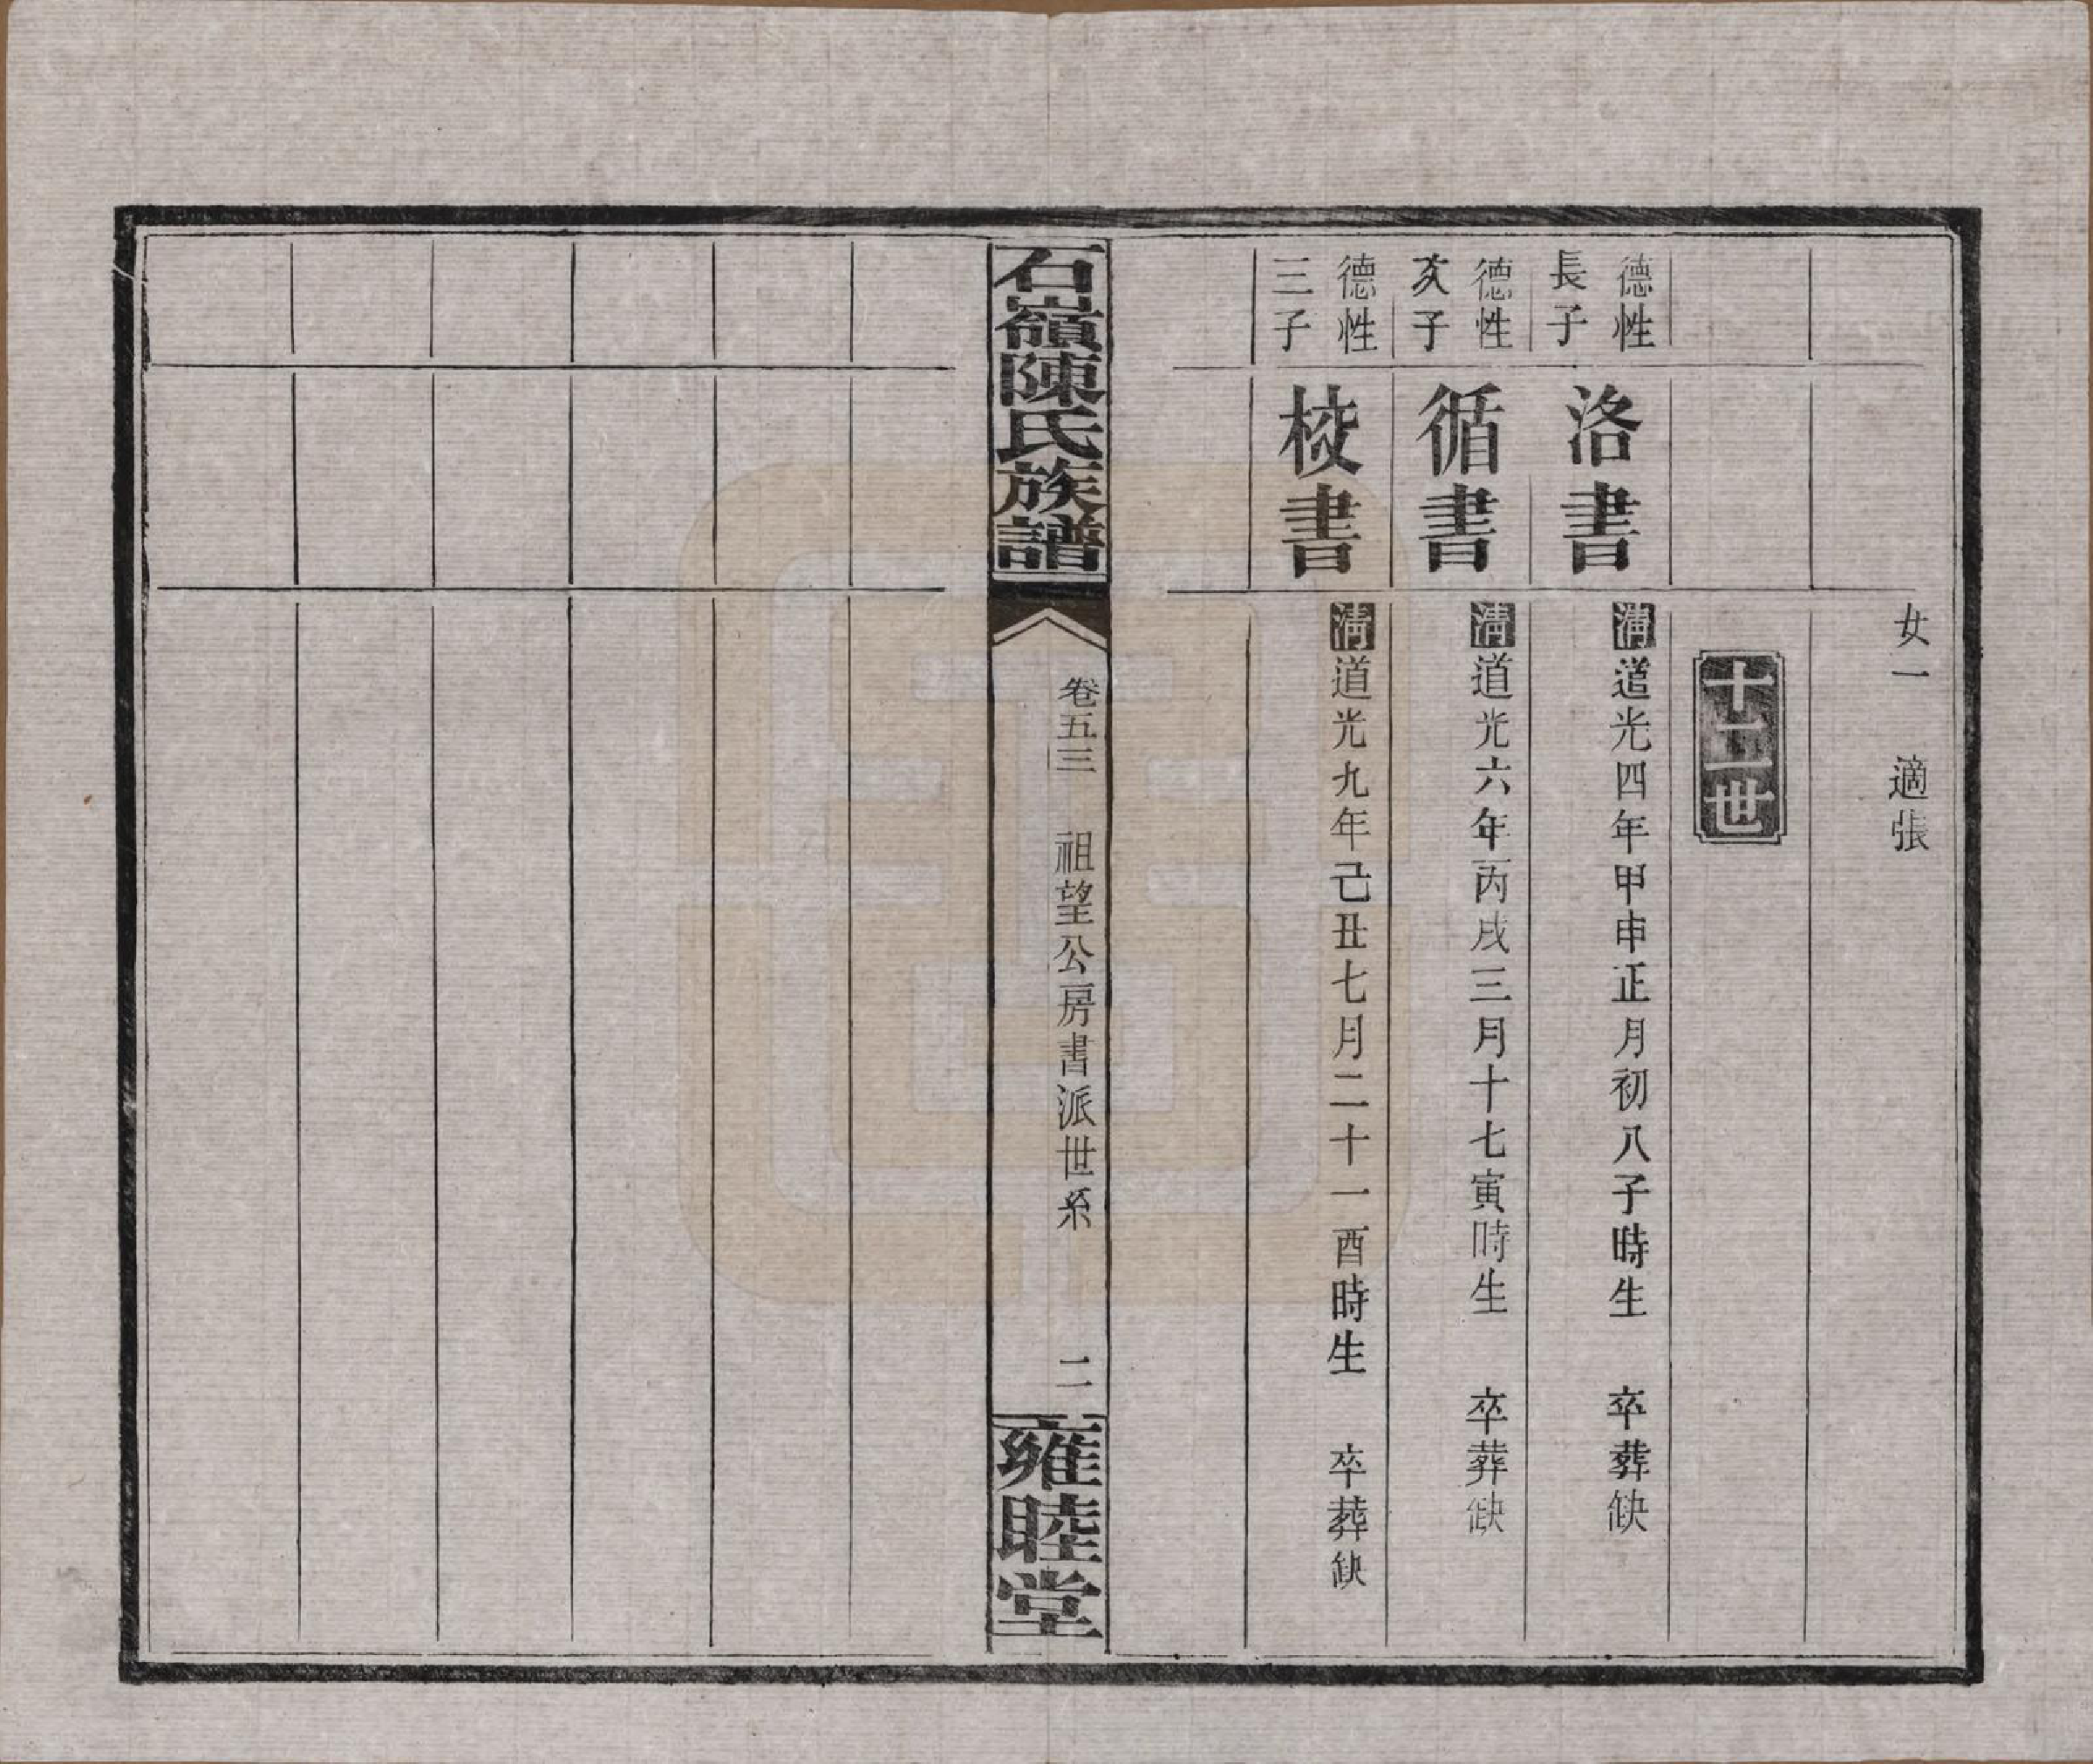 女一　適張
十二世
德性
長子
洛書
清道光四年甲申正月初八子時生　卒葬缺
德性
次子
循書
清道光六年丙戌三月十七寅時生　卒葬缺
德性
三子
校書
清道光九年己丑七月二十一酉時生　卒葬缺
石嶺陳氏族譜
卷五三　祖望公房書派世系
二
雍睦堂